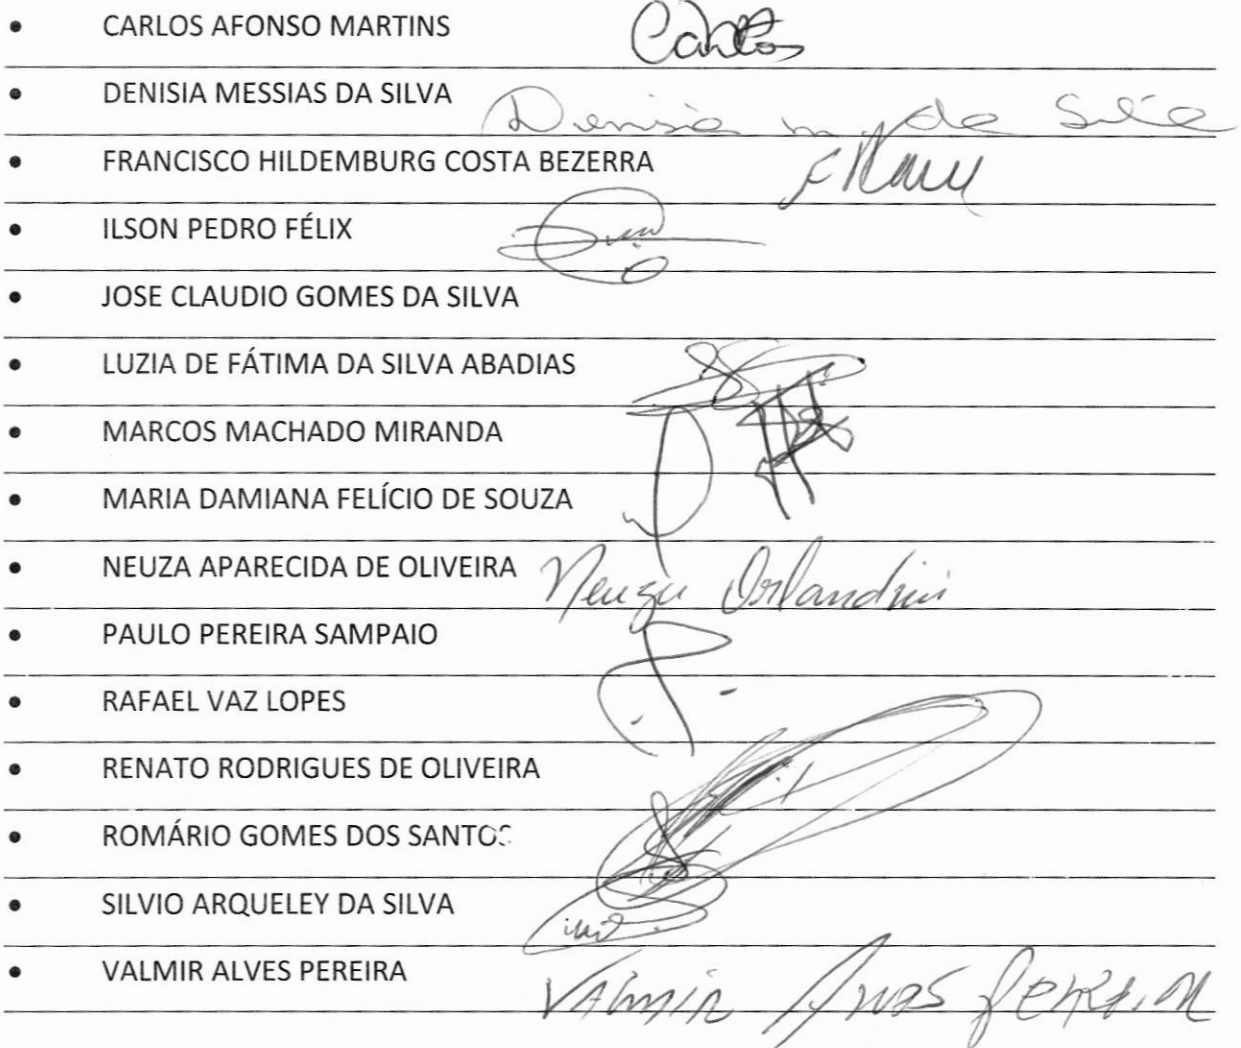 • CARLOS AFONSO MARTINS Carlos
• DENISIA MESSIAS DA SILVA Denisia m. da Silva
• FRANCISCO HILDEMBURG COSTA BEZERRA
• ILSON PEDRO FÉLIX
• JOSE CLAUDIO GOMES DA SILVA
• LUZIA DE FÁTIMA DA SILVA ABADIAS
• MARCOS MACHADO MIRANDA
• MARIA DAMIANA FELÍCIO DE SOUZA
• NEUZA APARECIDA DE OLIVEIRA Neuza Orlandini
• PAULO PEREIRA SAMPAIO
• RAFAEL VAZ LOPES
• RENATO RODRIGUES DE OLIVEIRA
• ROMÁRIO GOMES DOS SANTOS
• SILVIO ARQUELEY DA SILVA
• VALMIR ALVES PEREIRA Valmir Alves Pereira